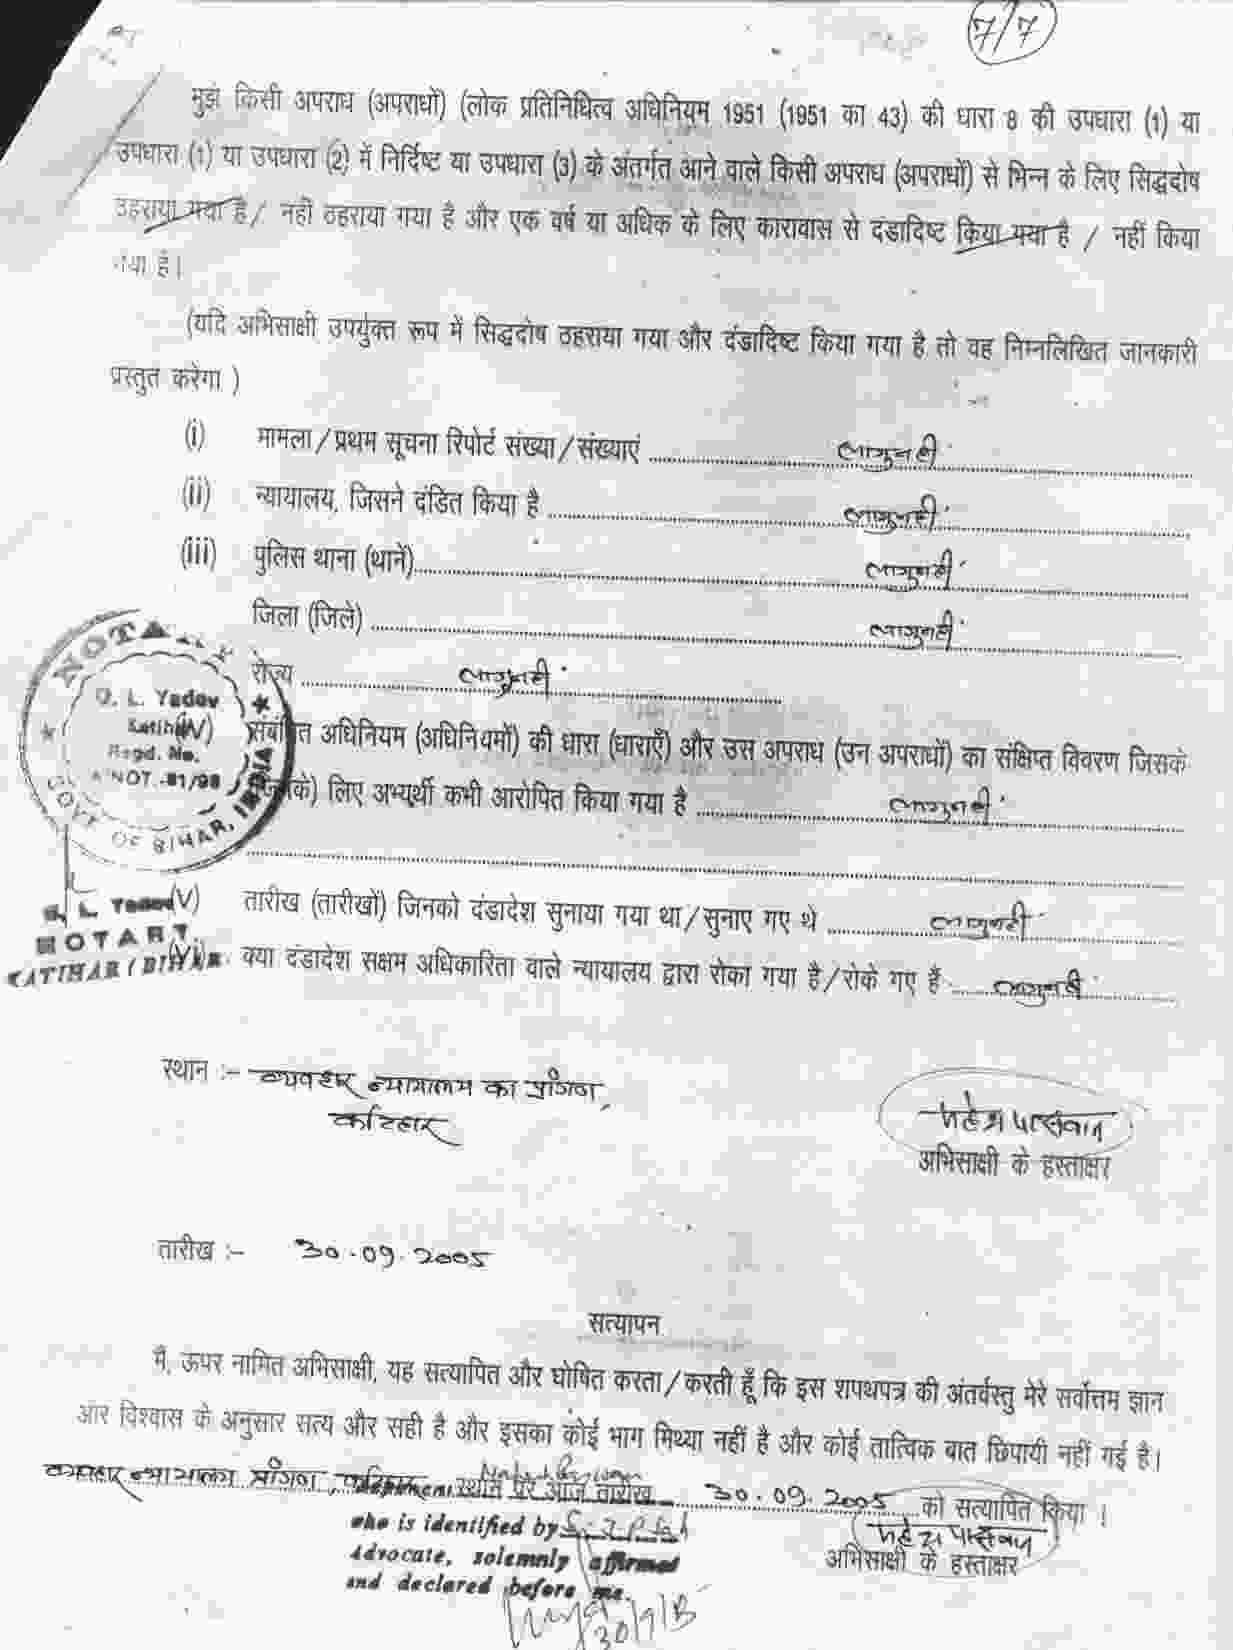 7/7
मुझे किसी अपराध (अपराधों) (लोक प्रतिनिधित्व अधिनियम 1951 (1951 का 43) की धारा 8 की उपधारा (1) या
उपधारा (1) या उपधारा (2) में निर्दिष्ट या उपधारा (3) के अंतर्गत आने वाले किसी अपराध (अपराधों) से भिन्न के लिए सिद्धदोष
ठहराया गया है / नहीं ठहराया गया है और एक वर्ष या अधिक के लिए कारावास से दंडादिष्ट किया गया है / नहीं किया
गया है।
(यदि अभिसाक्षी उपर्युक्त रूप में सिद्धदोष ठहराया गया और दंडादिष्ट किया गया है तो वह निम्नलिखित जानकारी
प्रस्तुत करेगा )
(i) मामला/प्रथम सूचना रिपोर्ट संख्या/संख्याएं लागु नहीं
(ii) न्यायालय, जिसने दंडित किया है लागु नहीं
(iii) पुलिस थाना (थानें) लागु नहीं
जिला (जिले) लागु नहीं
राज्य लागु नहीं
(iv) संबंधित अधिनियम (अधिनियमों) की धारा (धाराएँ) और उस अपराध (उन अपराधों) का संक्षिप्त विवरण जिसके
(जिनके) लिए अभ्यर्थी कभी आरोपित किया गया है लागु नहीं
(V) तारीख (तारीखों) जिनको दंडादेश सुनाया गया था/सुनाए गए थे लागु नहीं
(Vi) क्या दंडादेश सक्षम अधिकारिता वाले न्यायालय द्वारा रोका गया है/रोके गए हैं लागु नहीं
NOTARY
GOVT. OF BIHAR, INDIA
L. Yadav
Katihar
Regd. No.
NOT.-81/98
L. Yadav
NOTARY
KATIHAR (BIHAR)
स्थान :- व्यवहार न्यायालय का प्रांगण,
कटिहार
महेश पासवान
अभिसाक्षी के हस्ताक्षर
तारीख :- 30.09.2005
सत्यापन
मैं, ऊपर नामित अभिसाक्षी, यह सत्यापित और घोषित करता/करती हूँ कि इस शपथपत्र की अंतर्वस्तु मेरे सर्वोत्तम ज्ञान
और विश्वास के अनुसार सत्य और सही है और इसका कोई भाग मिथ्या नहीं है और कोई तात्विक बात छिपायी नहीं गई है।
व्यवहार न्यायालय प्रांगण, कटिहार स्थान पर आज तारीख 30.09.2005 को सत्यापित किया।
महेश पासवान
अभिसाक्षी के हस्ताक्षर
Deponent
who is identified by
Advocate, solemnly affirmed
and declared before me.